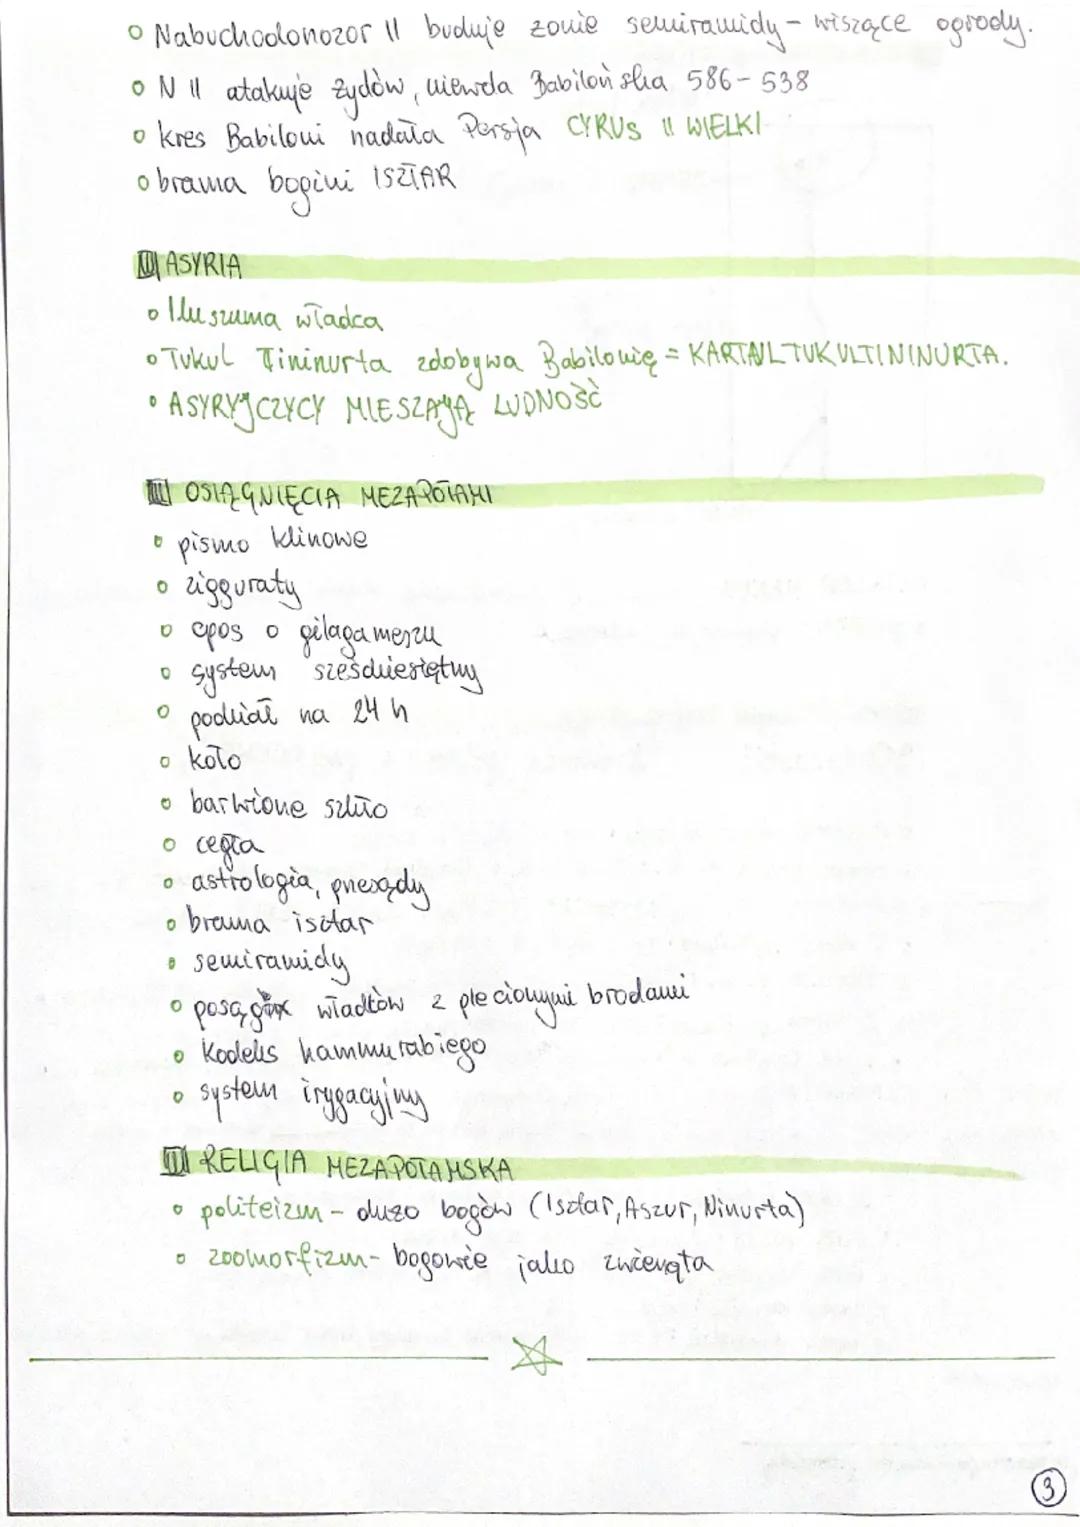 Nabuchodonozor II buduje żonie semiramidy - wiszące ogrody.
N II atakuje żydów, niewola Babilońska 586-538
kres Babiloni nadała Persja CYRUS II WIELKI
brama bogini ISZTAR
II ASYRIA
Iluszuma władca
Tukul Tininurta zdobywa Babilonię = KARTAUL TUKULTININURTA.
ASYRYJCZYCY MIESZAJĄ LUDNOŚĆ
III OSIĄGNIĘCIA MEZAPOTAMI
pismo klinowe
zigguraty
epos o gilagameszu
system sześdziesiętny
podział na 24 h
koło
barwione szkło
cegła
astrologia, przesądy
brama isztar
semiramidy
posągi władców z plecionymi brodami
Kodeks hammurabiego
system irygacyjny
III RELIGIA MEZAPOTAMSKA
politeizm - dużo bogów (Isztar, Aszur, Ninurta)
zoomorfizm - bogowie jako zwierzęta
3